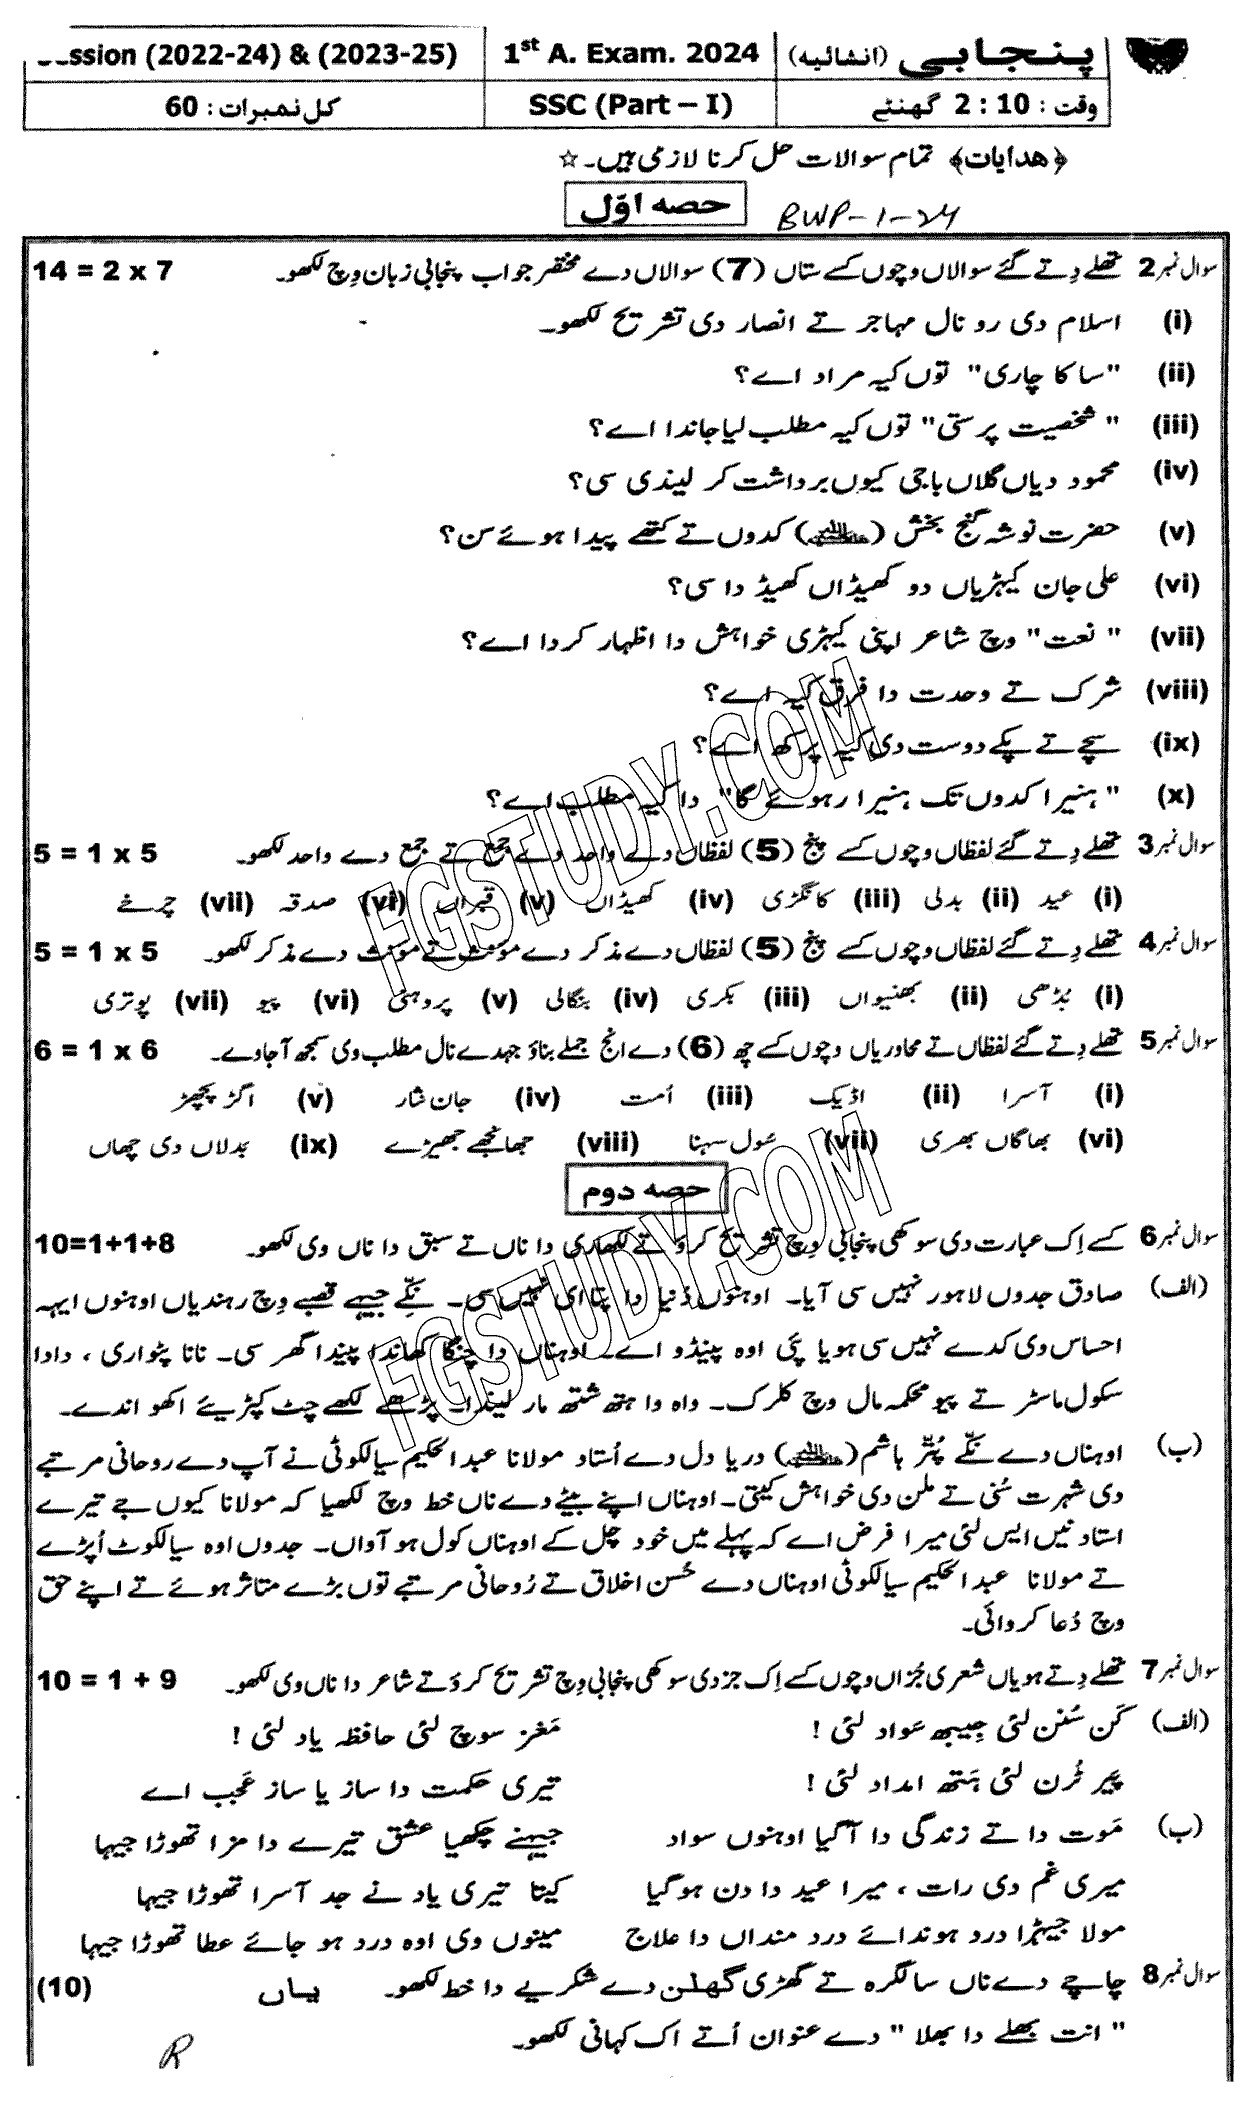 پنجابی (انشائیہ) 1st A. Exam. 2024 ssion (2022-24) & (2023-25)
وقت : 2:10 گھنٹے SSC (Part – I) کل نمبرات : 60
﴿ھدایات﴾ تمام سوالات حل کرنا لازمی ہیں۔ ☆
حصہ اوّل BWP-1-24
سوال نمبر 2 تھلے دِتے گئے سوالاں وچوں کسے ستاں (7) سوالاں دے مختصر جواب پنجابی زبان وِچ لکھو۔ 14 = 2 x 7
(i) اسلام دی رو نال مہاجر تے انصار دی تشریح لکھو۔
(ii) "ساکا چاری" توں کیہ مراد اے؟
(iii) "شخصیت پرستی" توں کیہ مطلب لیا جاندا اے؟
(iv) محمود دیاں گلاں باجی کیوں برداشت کر لیندی سی؟
(v) حضرت نوشہ گنج بخش (رحمۃ اللہ علیہ) کدوں تے کتھے پیدا ہوئے سن؟
(vi) علی جان کیہڑیاں دو کھیڈاں کھیڈ دا سی؟
(vii) "نعت" وچ شاعر اپنی کیہڑی خواہش دا اظہار کردا اے؟
(viii) شرک تے وحدت دا فرق کیہ اے؟
(ix) سچے تے پکے دوست دی کیہ پرکھ اے؟
(x) "ہنیرا کدوں تک ہنیرا رہوئے گا" دا کیہ مطلب اے؟
سوال نمبر 3 تھلے دِتے گئے لفظاں وچوں کسے پنج (5) لفظاں دے واحد دے جمع تے جمع دے واحد لکھو۔ 5 = 1 x 5
(i) عید (ii) بدلی (iii) کانگڑی (iv) کھیڈاں (v) قبراں (vi) صدقہ (vii) چرخے
سوال نمبر 4 تھلے دِتے گئے لفظاں وچوں کسے پنج (5) لفظاں دے مذکر دے مونث تے مونث دے مذکر لکھو۔ 5 = 1 x 5
(i) بُڈھی (ii) بھنیواں (iii) بکری (iv) بنگالی (v) پروہنی (vi) پیو (vii) پوتری
سوال نمبر 5 تھلے دِتے گئے لفظاں تے محاوریاں وچوں کسے چھ (6) دے انج جملے بناؤ جہدے نال مطلب وی سمجھ آ جاوے۔ 6 = 1 x 6
(i) آسرا (ii) اڈیک (iii) اُمت (iv) جان نثار (v) اگڑ پچھڑ
(vi) بھاگاں بھری (vii) سُول سہنا (viii) جھانجھے جھیڑے (ix) بدلاں دی چھاں
حصہ دوم
سوال نمبر 6 کسے اِک عبارت دی سوکھی پنجابی وِچ تشریح کرو تے لکھاری دا ناں تے سبق دا ناں وی لکھو۔ 10=1+1+8
(الف) صادق جدوں لاہور نہیں سی آیا۔ اوہنوں دُنیا دا پتا ای نہیں سی۔ نِکے جیہے قصبے وِچ رہندیاں اوہنوں ایہہ
احساس وی کدے نہیں سی ہویا پئی اوہ پینڈو اے۔ اوہناں دا چنگا کھاندا پیندا گھر سی۔ نانا پٹواری ، دادا
سکول ماسٹر تے پیو محکمہ مال وِچ کلرک۔ واہ وا ہتھ شتھ مار لیندا۔ پڑھے لکھے چِٹ کپڑیئے اکھواندے۔
(ب) اوہناں دے نِکے پُتّر ہاشم (رحمۃ اللہ علیہ) دریا دل دے اُستاد مولانا عبدالحکیم سیالکوٹی نے آپ دے روحانی مرتبے
دی شہرت سُنی تے ملن دی خواہش کیتی۔ اوہناں اپنے بیٹے دے ناں خط وِچ لکھیا کہ مولانا کیوں جے تیرے
استاد نیں ایس لئی میرا فرض اے کہ پہلے میں خود چل کے اوہناں کول ہو آواں۔ جدوں اوہ سیالکوٹ اُپڑے
تے مولانا عبدالحکیم سیالکوٹی اوہناں دے حُسن اخلاق تے رُوحانی مرتبے توں بڑے متاثر ہوئے تے اپنے حق
وِچ دُعا کروائی۔
سوال نمبر 7 تھلے دِتے ہویاں شعری جُزاں وچوں کسے اِک جز دی سوکھی پنجابی وِچ تشریح کرو تے شاعر دا ناں وی لکھو۔ 10 = 1 + 9
(الف) کَن سُنن لئی جِیبھ سواد لئی ! مَغز سوچ لئی حافظہ یاد لئی !
پَیر ٹُرن لئی ہَتھ امداد لئی ! تیری حکمت دا ساز یا ساز عَجب اے
(ب) مَوت دا تے زندگی دا آ گیا اوہنوں سواد جیہنے چکھیا عشق تیرے دا مزا تھوڑا جیہا
میری غم دی رات ، میرا عید دا دن ہو گیا کیتا تیری یاد نے جد آسرا تھوڑا جیہا
مولا جیہڑا درد ہوندائے درد منداں دا علاج مینوں وی اوہ درد ہو جائے عطا تھوڑا جیہا
سوال نمبر 8 چاچے دے ناں سالگرہ تے گھڑی گھلن دے شکریے دا خط لکھو۔ یاں (10)
"انت بھلے دا بھلا" دے عنوان اُتے اک کہانی لکھو۔
R
FGSTUDY.COM
FGSTUDY.COM